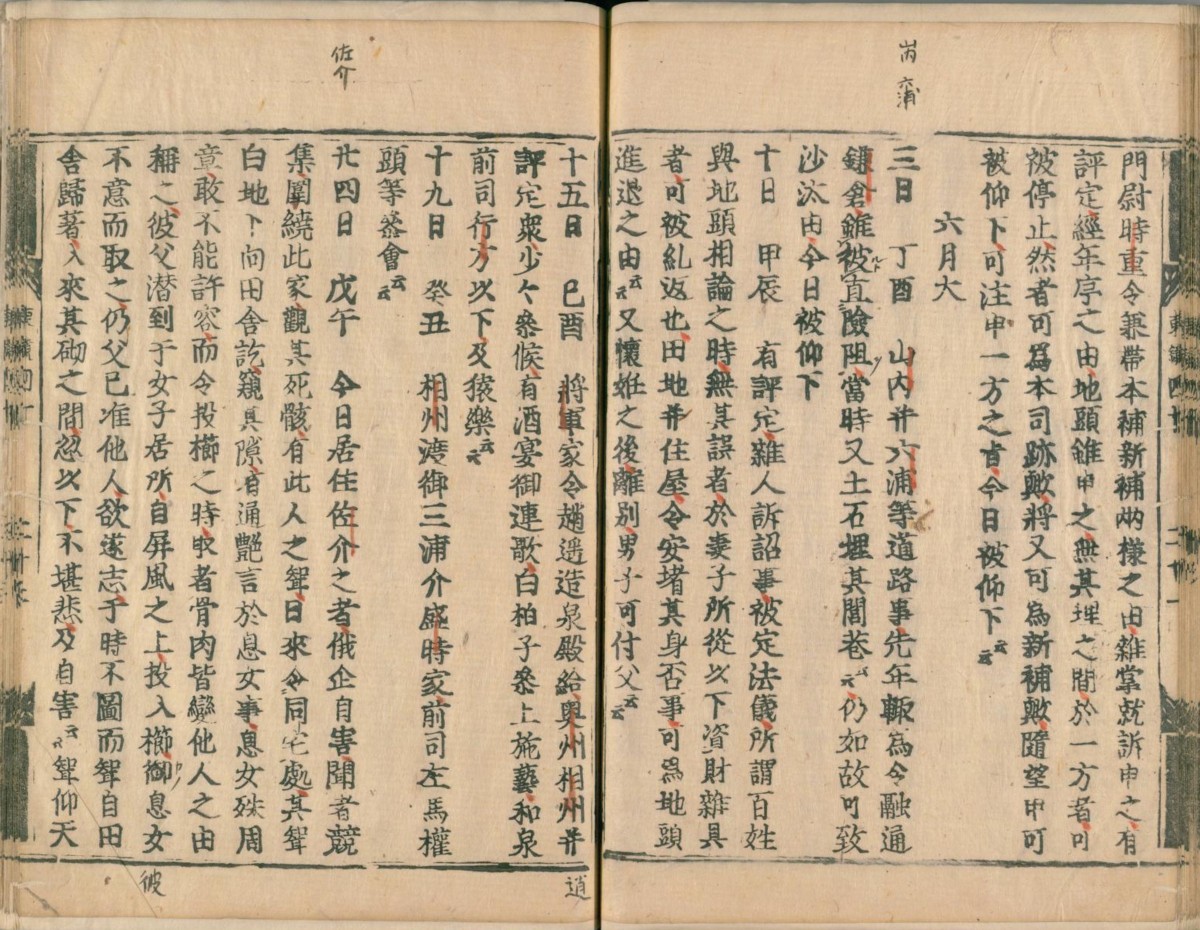 𡵅 六浦
門尉時重令兼帶本補新補兩樣之由雜掌就訴申之有
評定經年序之由地頭雖申之無其理之間於一方者可
被停止然者可爲本司跡歟將又可為新補歟隨望申可
被仰下可注申一方之旨今日被仰下云云
六月大
三日 丁酉 山内并六浦等道路事先年輙為令融通
鎌倉雖被直險阻當時又土石埋其閭巷云云仍如故可致
沙汰由今日被仰下
十日 甲辰 有評定雜人訴詔事被定法儀所謂百姓
與地頭相論之時無其誤者於妻子所從以下資財雜具
者可被糺返也田地并住屋令安堵其身否事可為地頭
進退之由云云又懷姙之後離別男子可付父云云
逍
佐介
十五日 巳酉 將軍家令趙遥造泉殿給奥州相州并
評定衆少々叅候有酒宴御連歌白柏子叅上施藝和泉
前司行方以下及猿樂云云
十九日 癸丑 相州渡御三浦介盛時家前司左馬權
頭等叅會云云
廿四日 戊午 今日居住佐介之者俄企自害聞者競
集圍繞此家觀其死骸有此人之聟日來令同宅處其聟
白地下向田舎訖窺其隙有通艶言於息女事息女殊周
章敢不能許容而令投櫛之時取者骨肉皆變他人之由
稱之彼父潜到于女子居所自屏風之上投入櫛御息女
不意而取之仍父已准他人欲遂志于時不圖而聟自田
舎歸著入來其砌之間忽以下不堪悲及自害云云聟仰天
彼